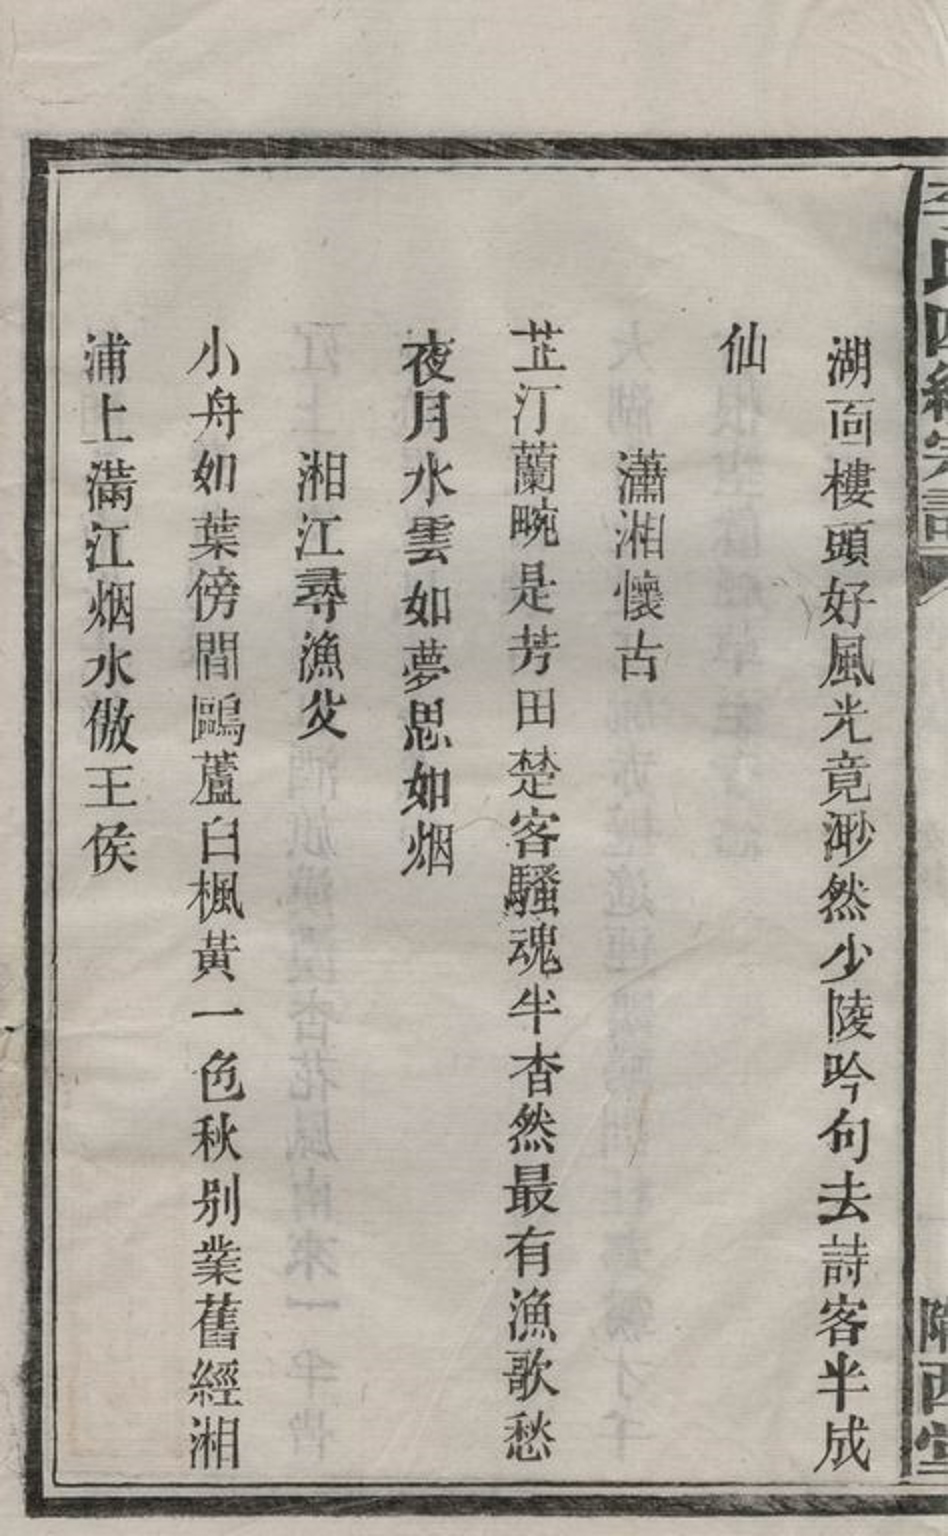 李氏四續宗譜
隴西堂
湖面樓頭好風光竟渺然少陵吟句去詩客半成
仙
瀟湘懷古
芷汀蘭畹是芳田楚客騷魂半杳然最有漁歌愁
夜月水雲如夢思如烟
湘江尋漁父
小舟如葉傍閒鷗蘆白楓黃一色秋别業舊經湘
浦上滿江烟水傲王侯